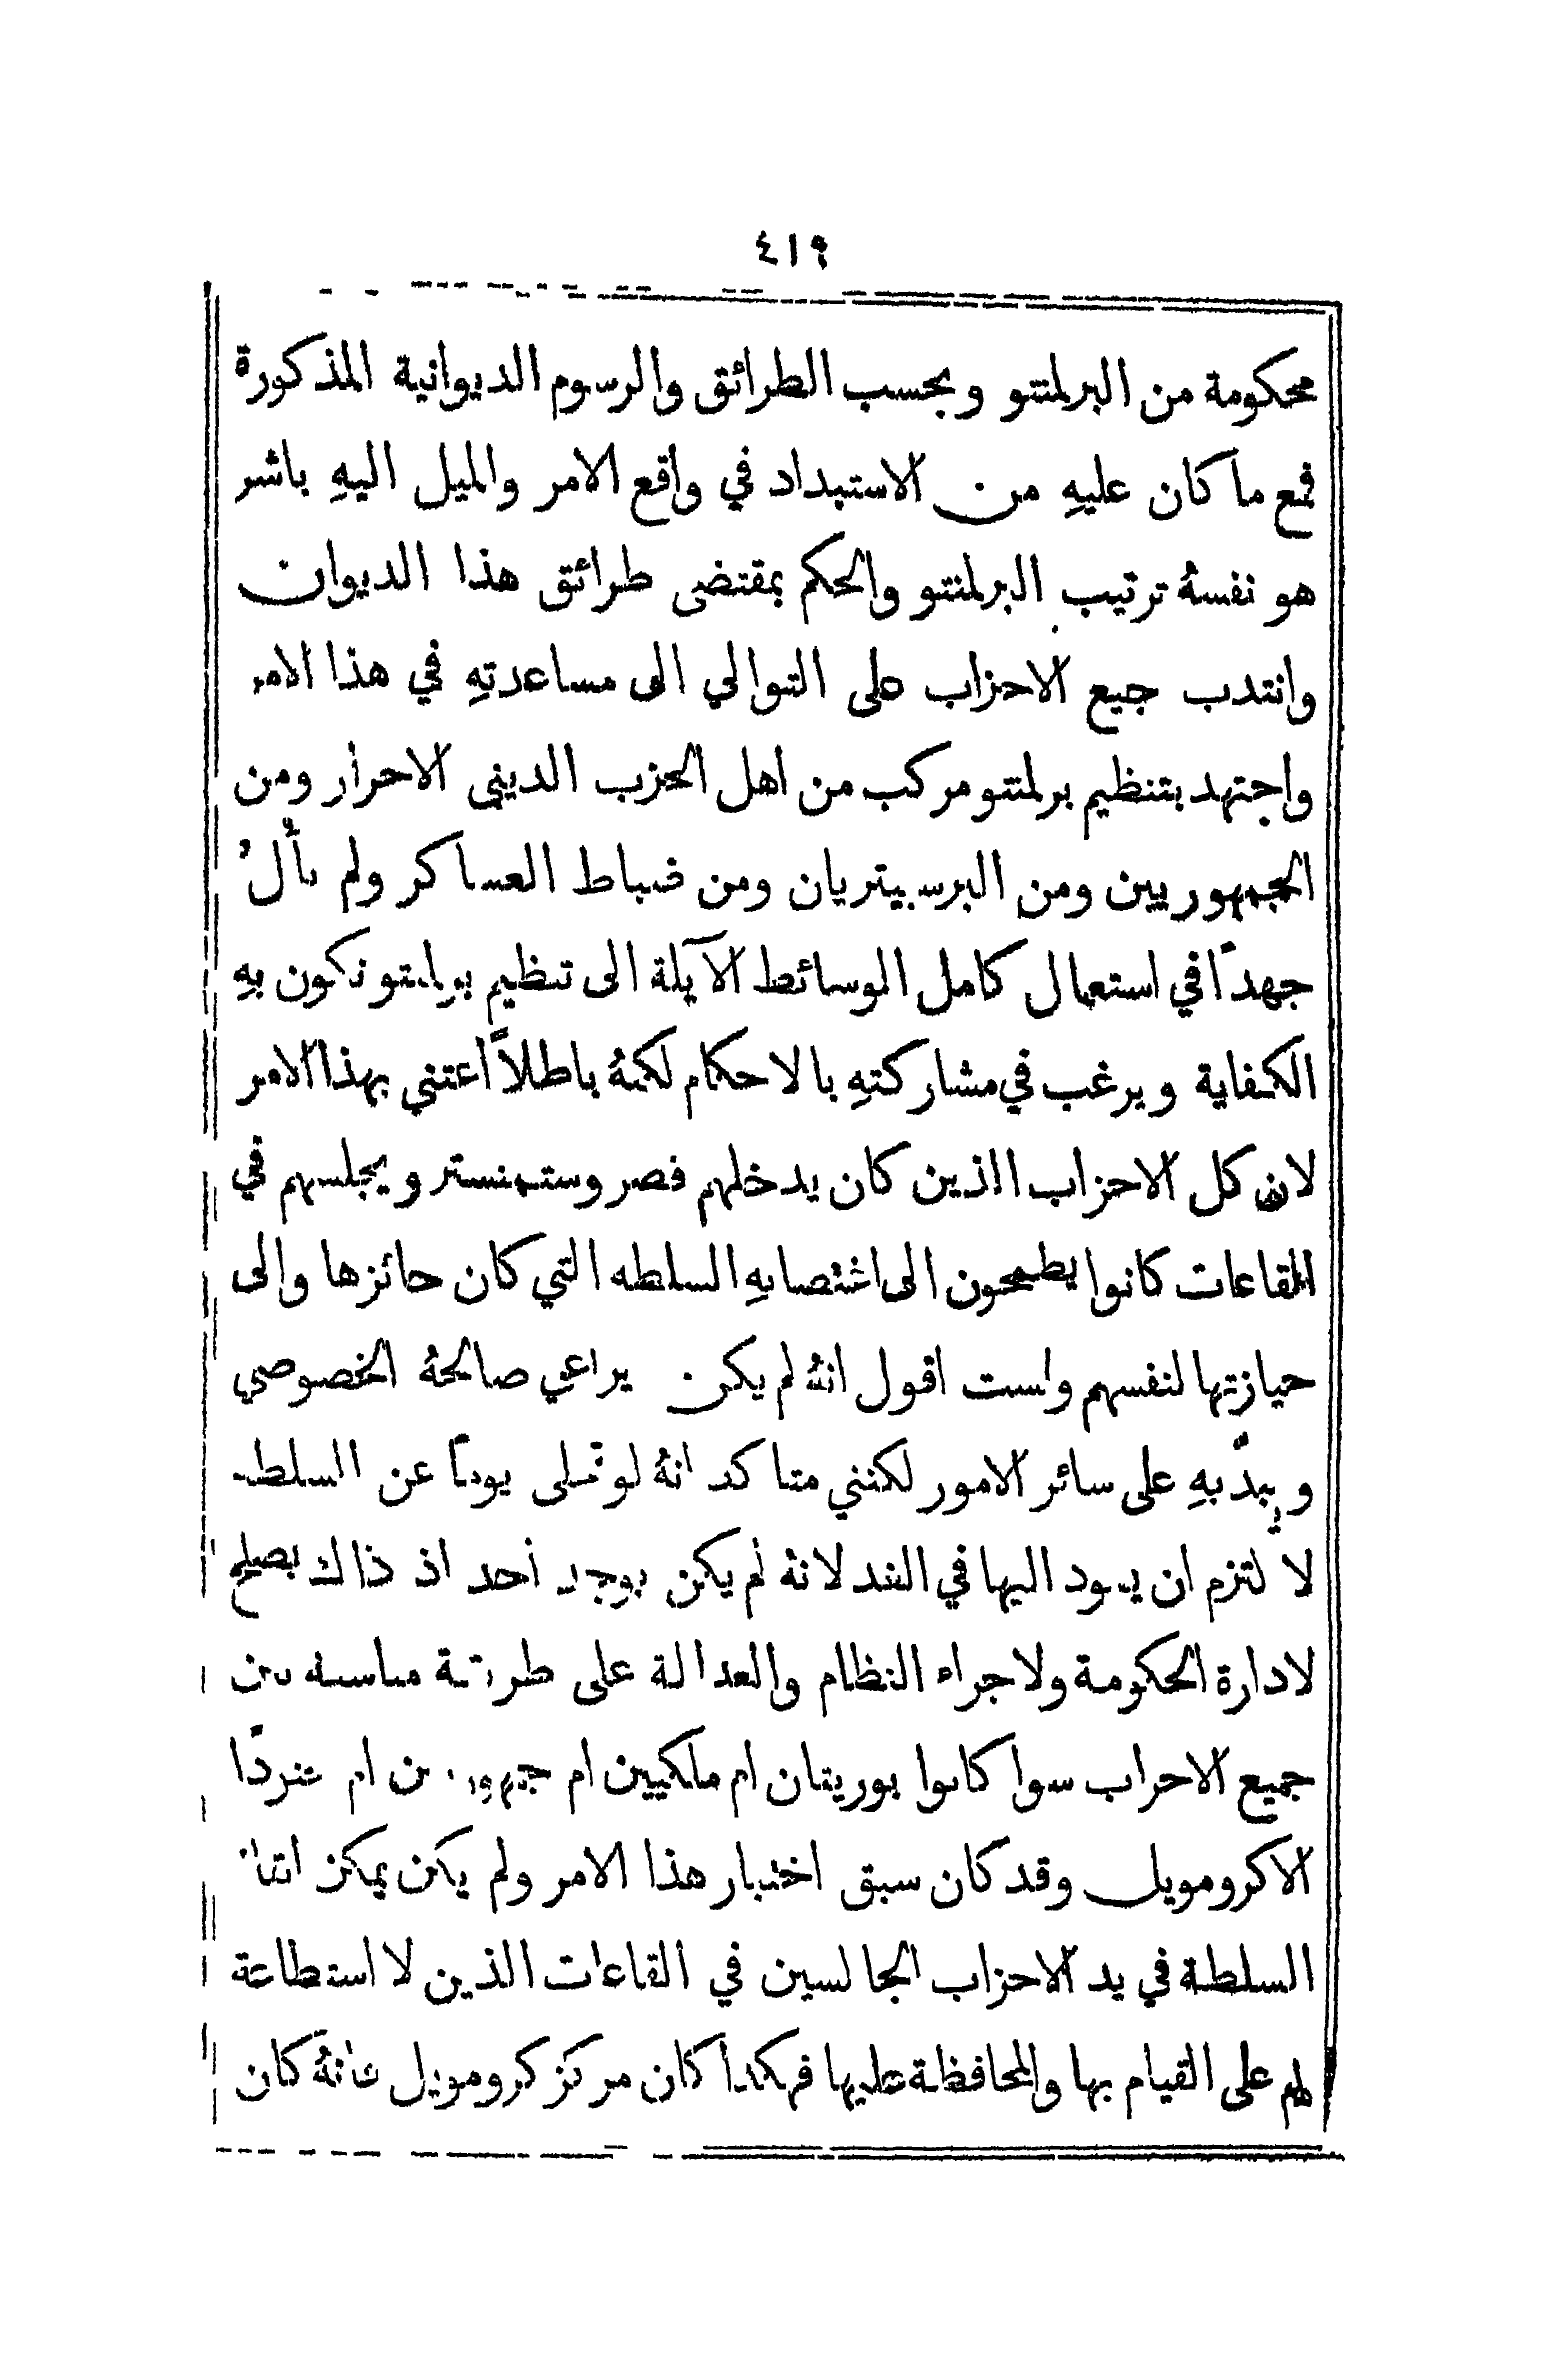 ٤١٩
محكومة من البرلمنتو وبحسب الطرائق والرسوم الديوانية المذكورة
فمع ما كان عليهِ من الاستبداد في واقع الامر والميل اليهِ باشر
هو نفسهُ ترتيب البرلمنتو والحكم بمقتضى طرائق هذا الديوان
وانتدب جميع الاحزاب على التوالي الى مساعدتهِ في هذا الامر
واجتهد بتنظيم برلمنتو مركب من اهل الحزب الديني الاحرار ومن
الجمهوريين ومن البرسبيتريان ومن ضباط العساكر ولم يألُ
جهدًا في استعمال كامل الوسائط الآيلة الى تنظيم برلمنتو تكون بهِ
الكفاية ويرغب في مشاركتهِ بالاحكام لكنهُ باطلاً اعتنى بهذا الامر
لان كل الاحزاب الذين كان يدخلهم قصر وستمنستر ويجلسهم في
القاعات كانوا يطمحون الى اغتصابهِ السلطه التي كان حائزها والى
حيازتها لنفسهم ولست اقول انهُ لم يكن يراعي صالحهُ الخصوصي
ويبدّيهِ على سائر الامور لكنني متاكد انهُ لو تخلى يومًا عن السلطة
لا لتزم ان يعود اليها في الغد لانهُ لم يكن يوجد احد اذ ذاك يصلح
لادارة الحكومة ولاجراء النظام والعدالة على طريقة مناسبه بين
جميع الاحزاب سوا كانوا بوريتان ام ملكيين ام جمهوريين ام
الاكرومويل وقد كان سبق اختبار هذا الامر ولم يكن يمكن ابقاء
السلطة في يد الاحزاب الجالسين في القاعات الذين لا استطاعة
لهم على القيام بها والمحافظة عليها فهكذا كان مركز كرومويل فانهُ كان